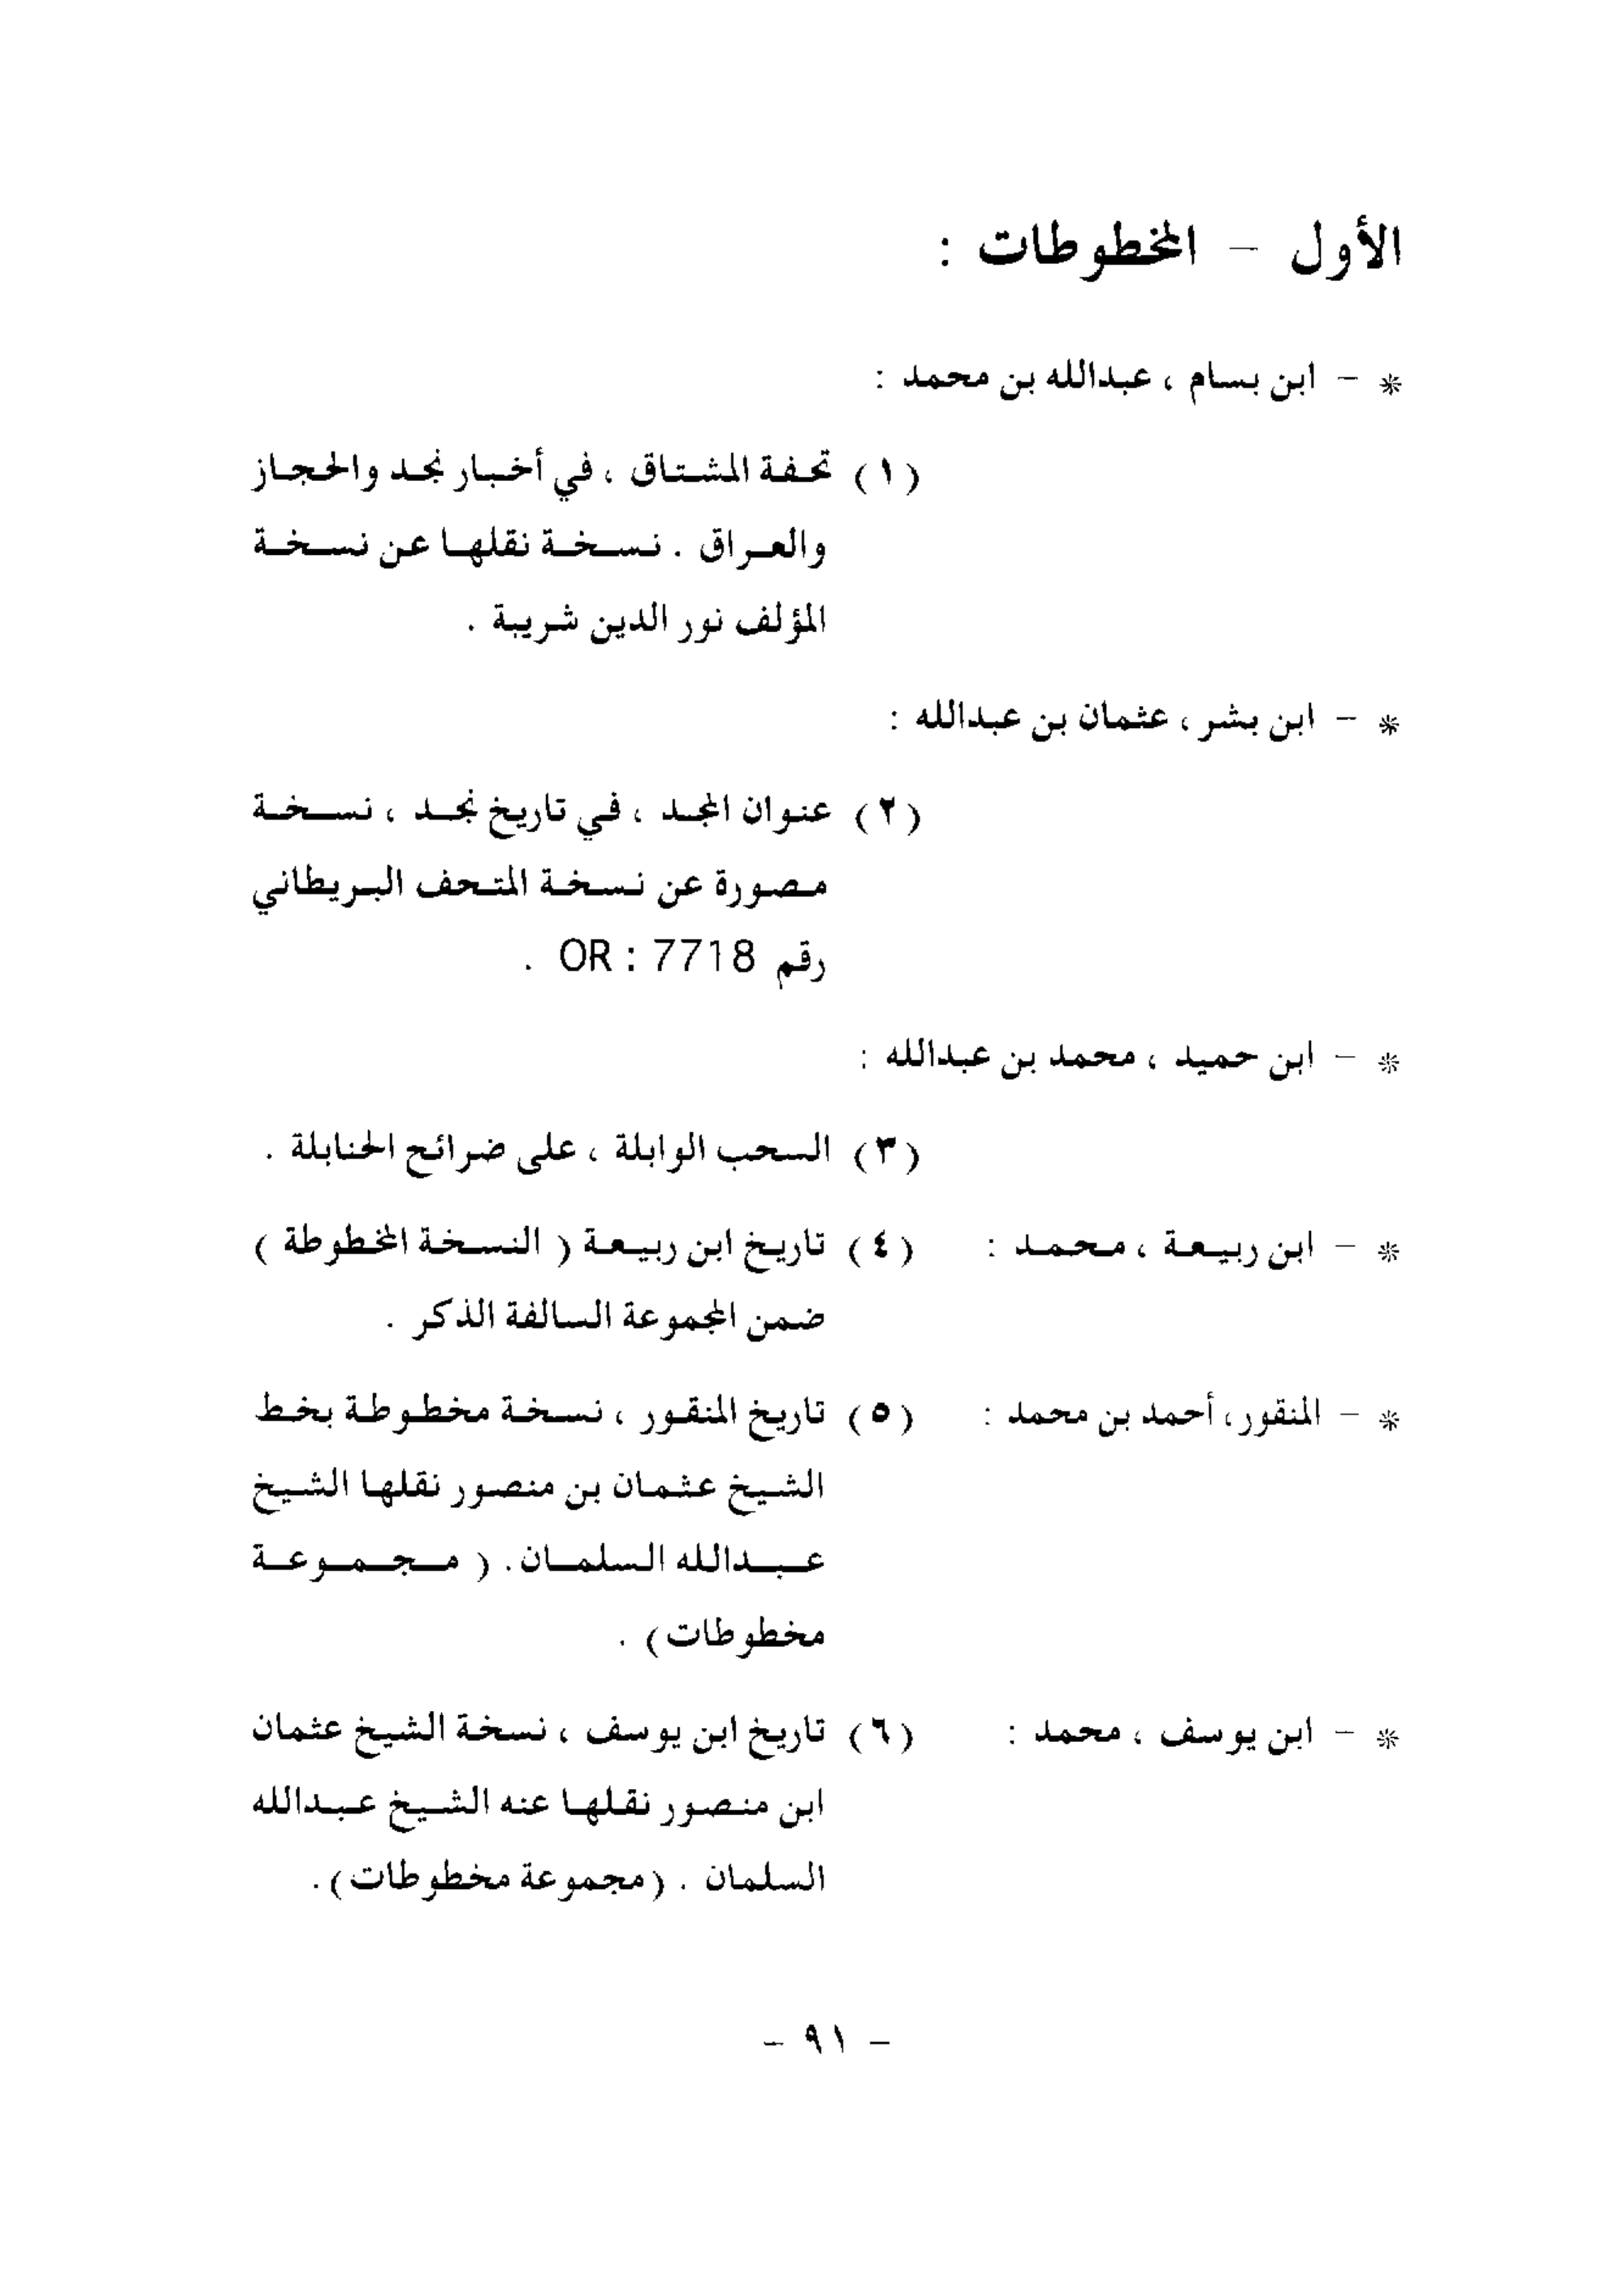 الأول – المخطوطات :
* – ابن بسام ، عبدالله بن محمد :
(١) تحفة المشتاق ، في أخبار نجد والحجاز
والعراق . نسخة نقلها عن نسخة
المؤلف نور الدين شريبة .
* – ابن بشر ، عثمان بن عبدالله :
(٢) عنوان المجد ، في تاريخ نجد ، نسخة
مصورة عن نسخة المتحف البريطاني
رقم OR : 7718 .
* – ابن حميد ، محمد بن عبدالله :
(٣) السحب الوابلة ، على ضرائح الحنابلة .
* – ابن ربيعة ، محمد : (٤) تاريخ ابن ربيعة ( النسخة المخطوطة )
ضمن المجموعة السالفة الذكر .
* – المنقور، أحمد بن محمد : (٥) تاريخ المنقور ، نسخة مخطوطة بخط
الشيخ عثمان بن منصور نقلها الشيخ
عبدالله السلمان. ( مجموعة
مخطوطات) .
* – ابن يوسف ، محمد : (٦) تاريخ ابن يوسف ، نسخة الشيخ عثمان
ابن منصور نقلها عنه الشيخ عبدالله
السلمان . (مجموعة مخطوطات).
– ٩١ –